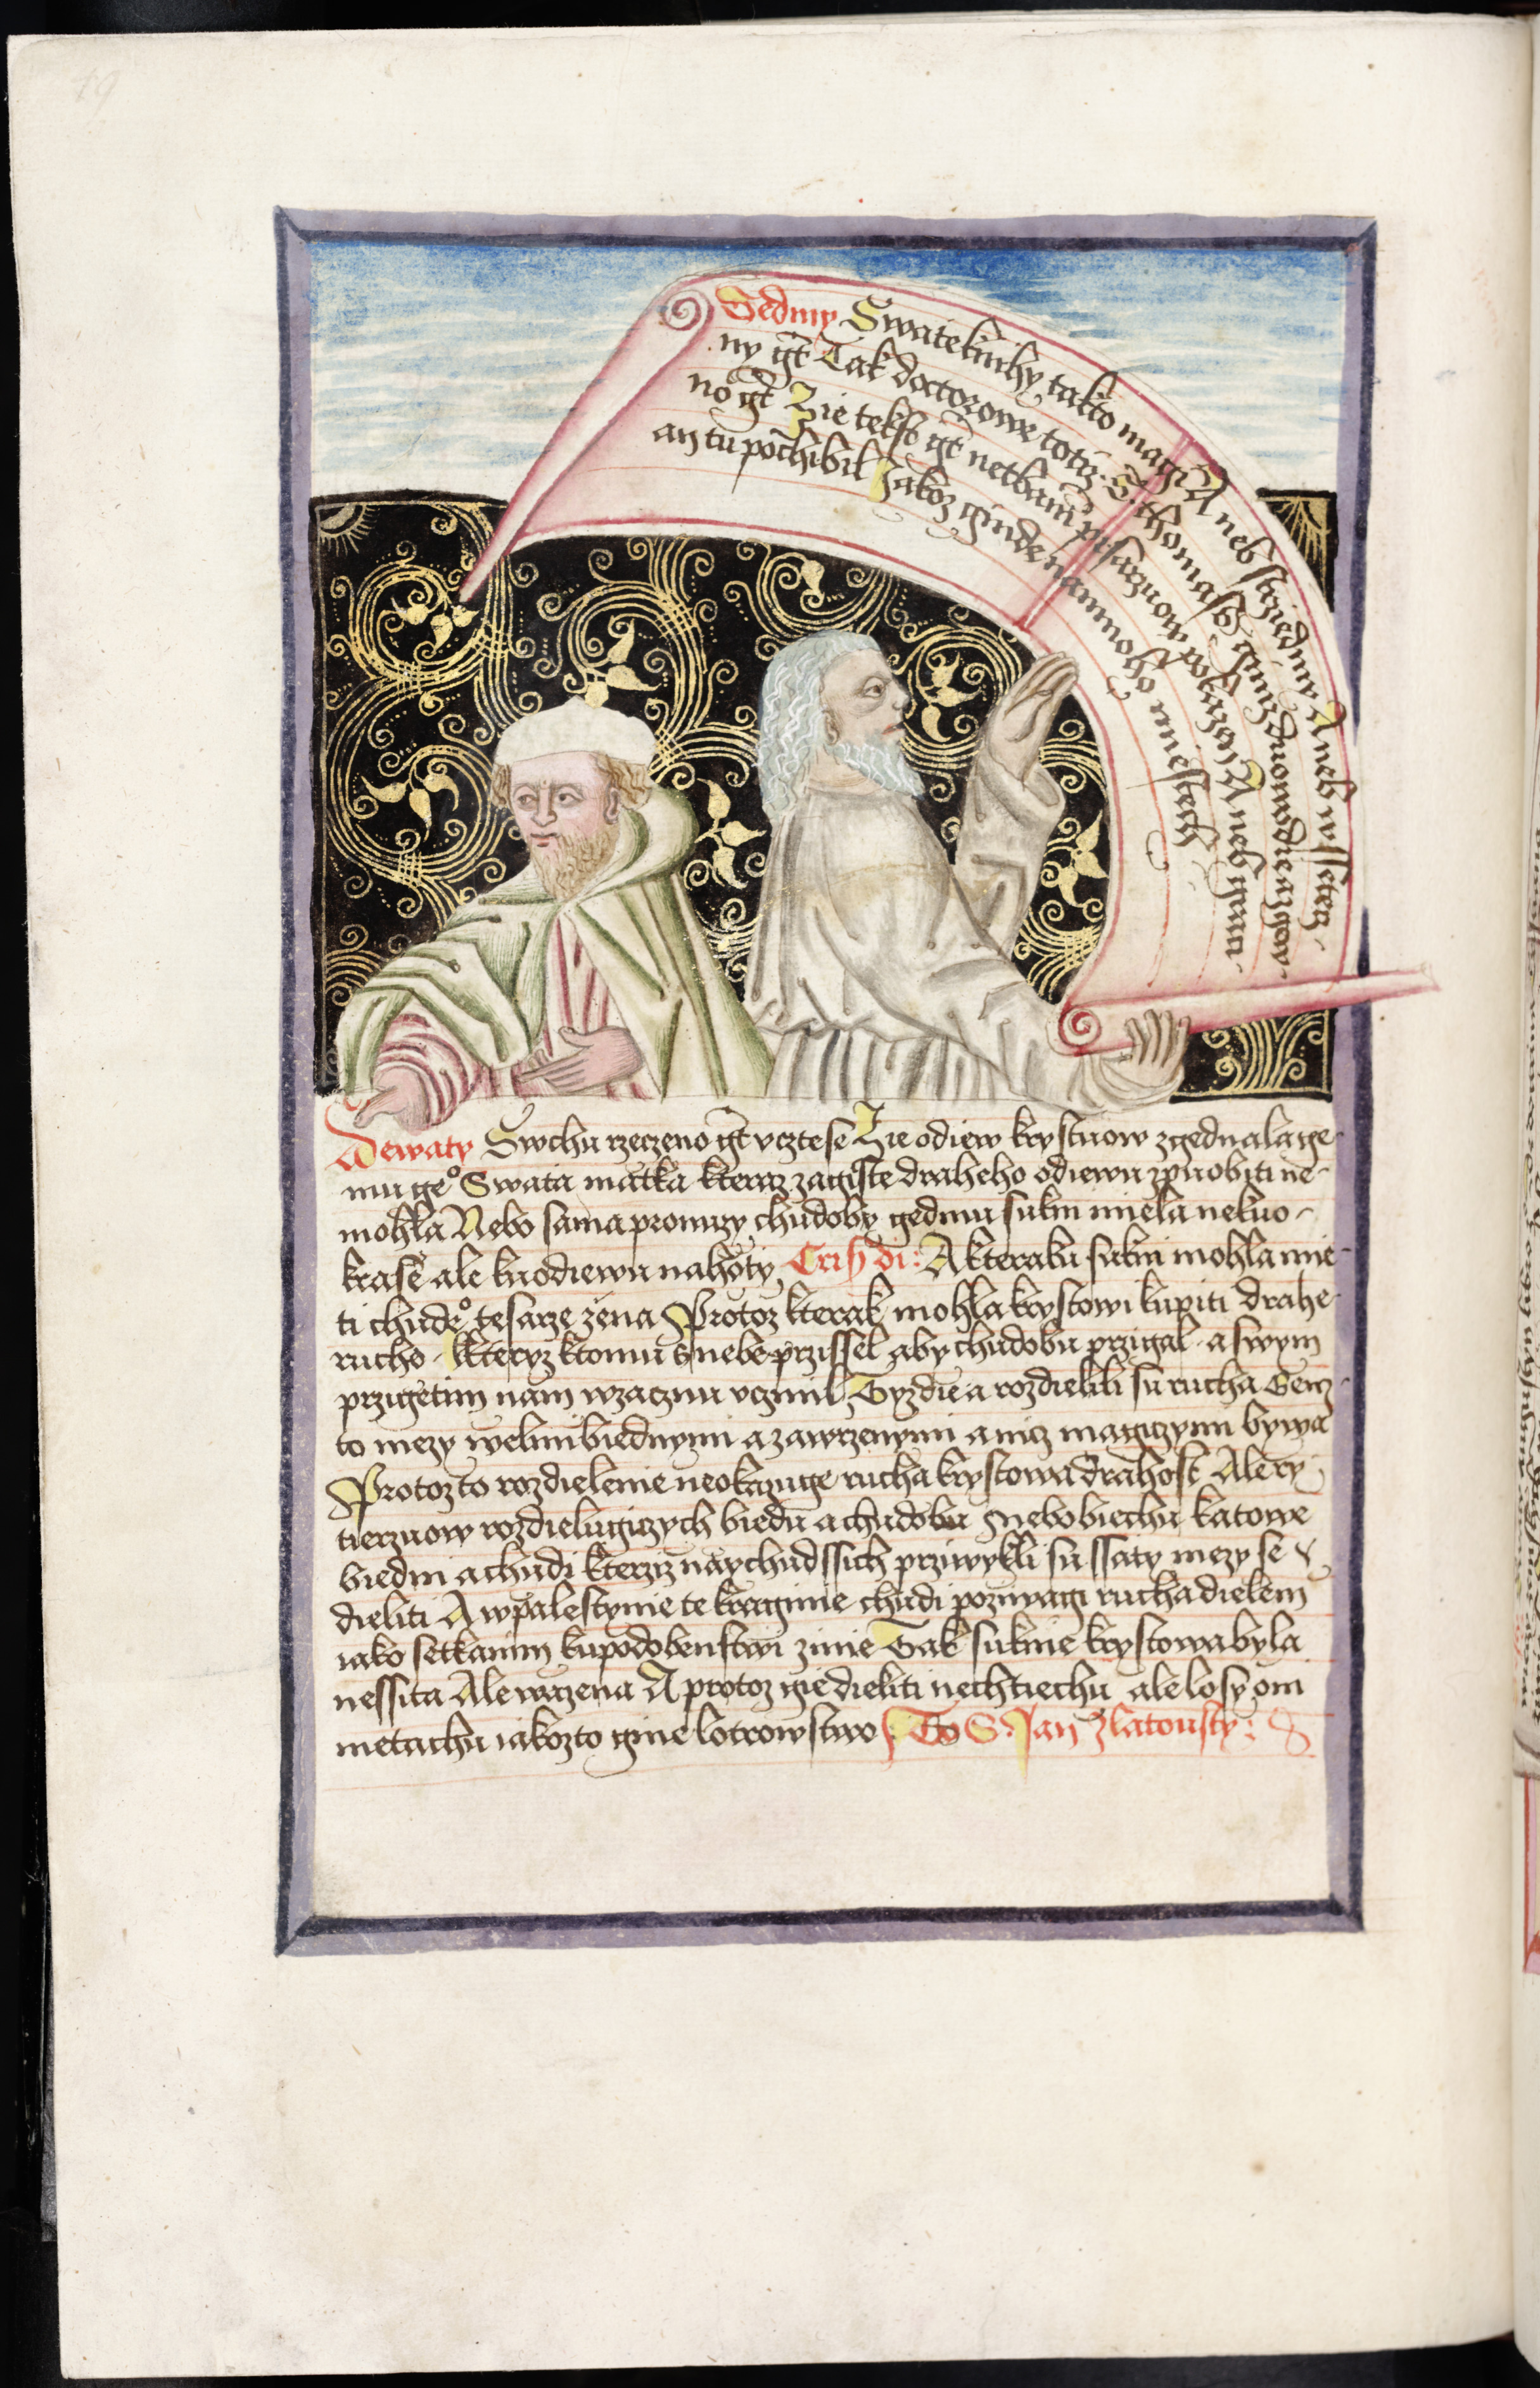 Sedmy Swate knihy takto magi A neb strziedmy A neb wssetecz-
ny gt Tak doctorowe totiz: S. thomass ginizduowodie azgew-
no gt Zie tekst gt netbanim pisarzuow pokazen A neb ginati-
an tu pochibil Jakoz ginde na mnoho miestech
Dewaty Swchu rzeczeno gt vcztese Zie odiew krystuow zgednala ge-
mu geo Swata matka kteraz zagiste draheho odiewu zpuobiti ne-
mohla Nebo sama pro nuzy chudoby gednu sukni miela ne kuo-
krasie ale kuodiewu nahoty Cris di: A kteraku sukni mohla mie-
ti chudeo tesarze zena Protoz kterak mohla krystowi kupiti drahe
rucho Kteryz ktomu s nebe przissel aby chudobu przigal a swym
przigetim nam wzacznu vczinil Gyzdie a rozdielili su rucha Genz-
to mezy welmi biednymi a zawrzenymi a nicz magiczymi bywa
Protoz to rozdielenie neokazuge rucha krystowa drahost Ale ry-
tierzuow rozdielugiczych biedu a chudobu Nebo biechu katowe
biedni a chudi kterziz naychudssich przywykli su ssaty mezy se
dieliti A w palestynie te kraginie chudi pozywagi rucha dielem
iako setkanim kupodobenstwi zinie Gak suknie krystowa byla
nessita Ale wazena A protoz gie dieliti nechtiechu ale losy oni
metachu iakozto gine lotrowstwo To S. Jan Zlatousty: